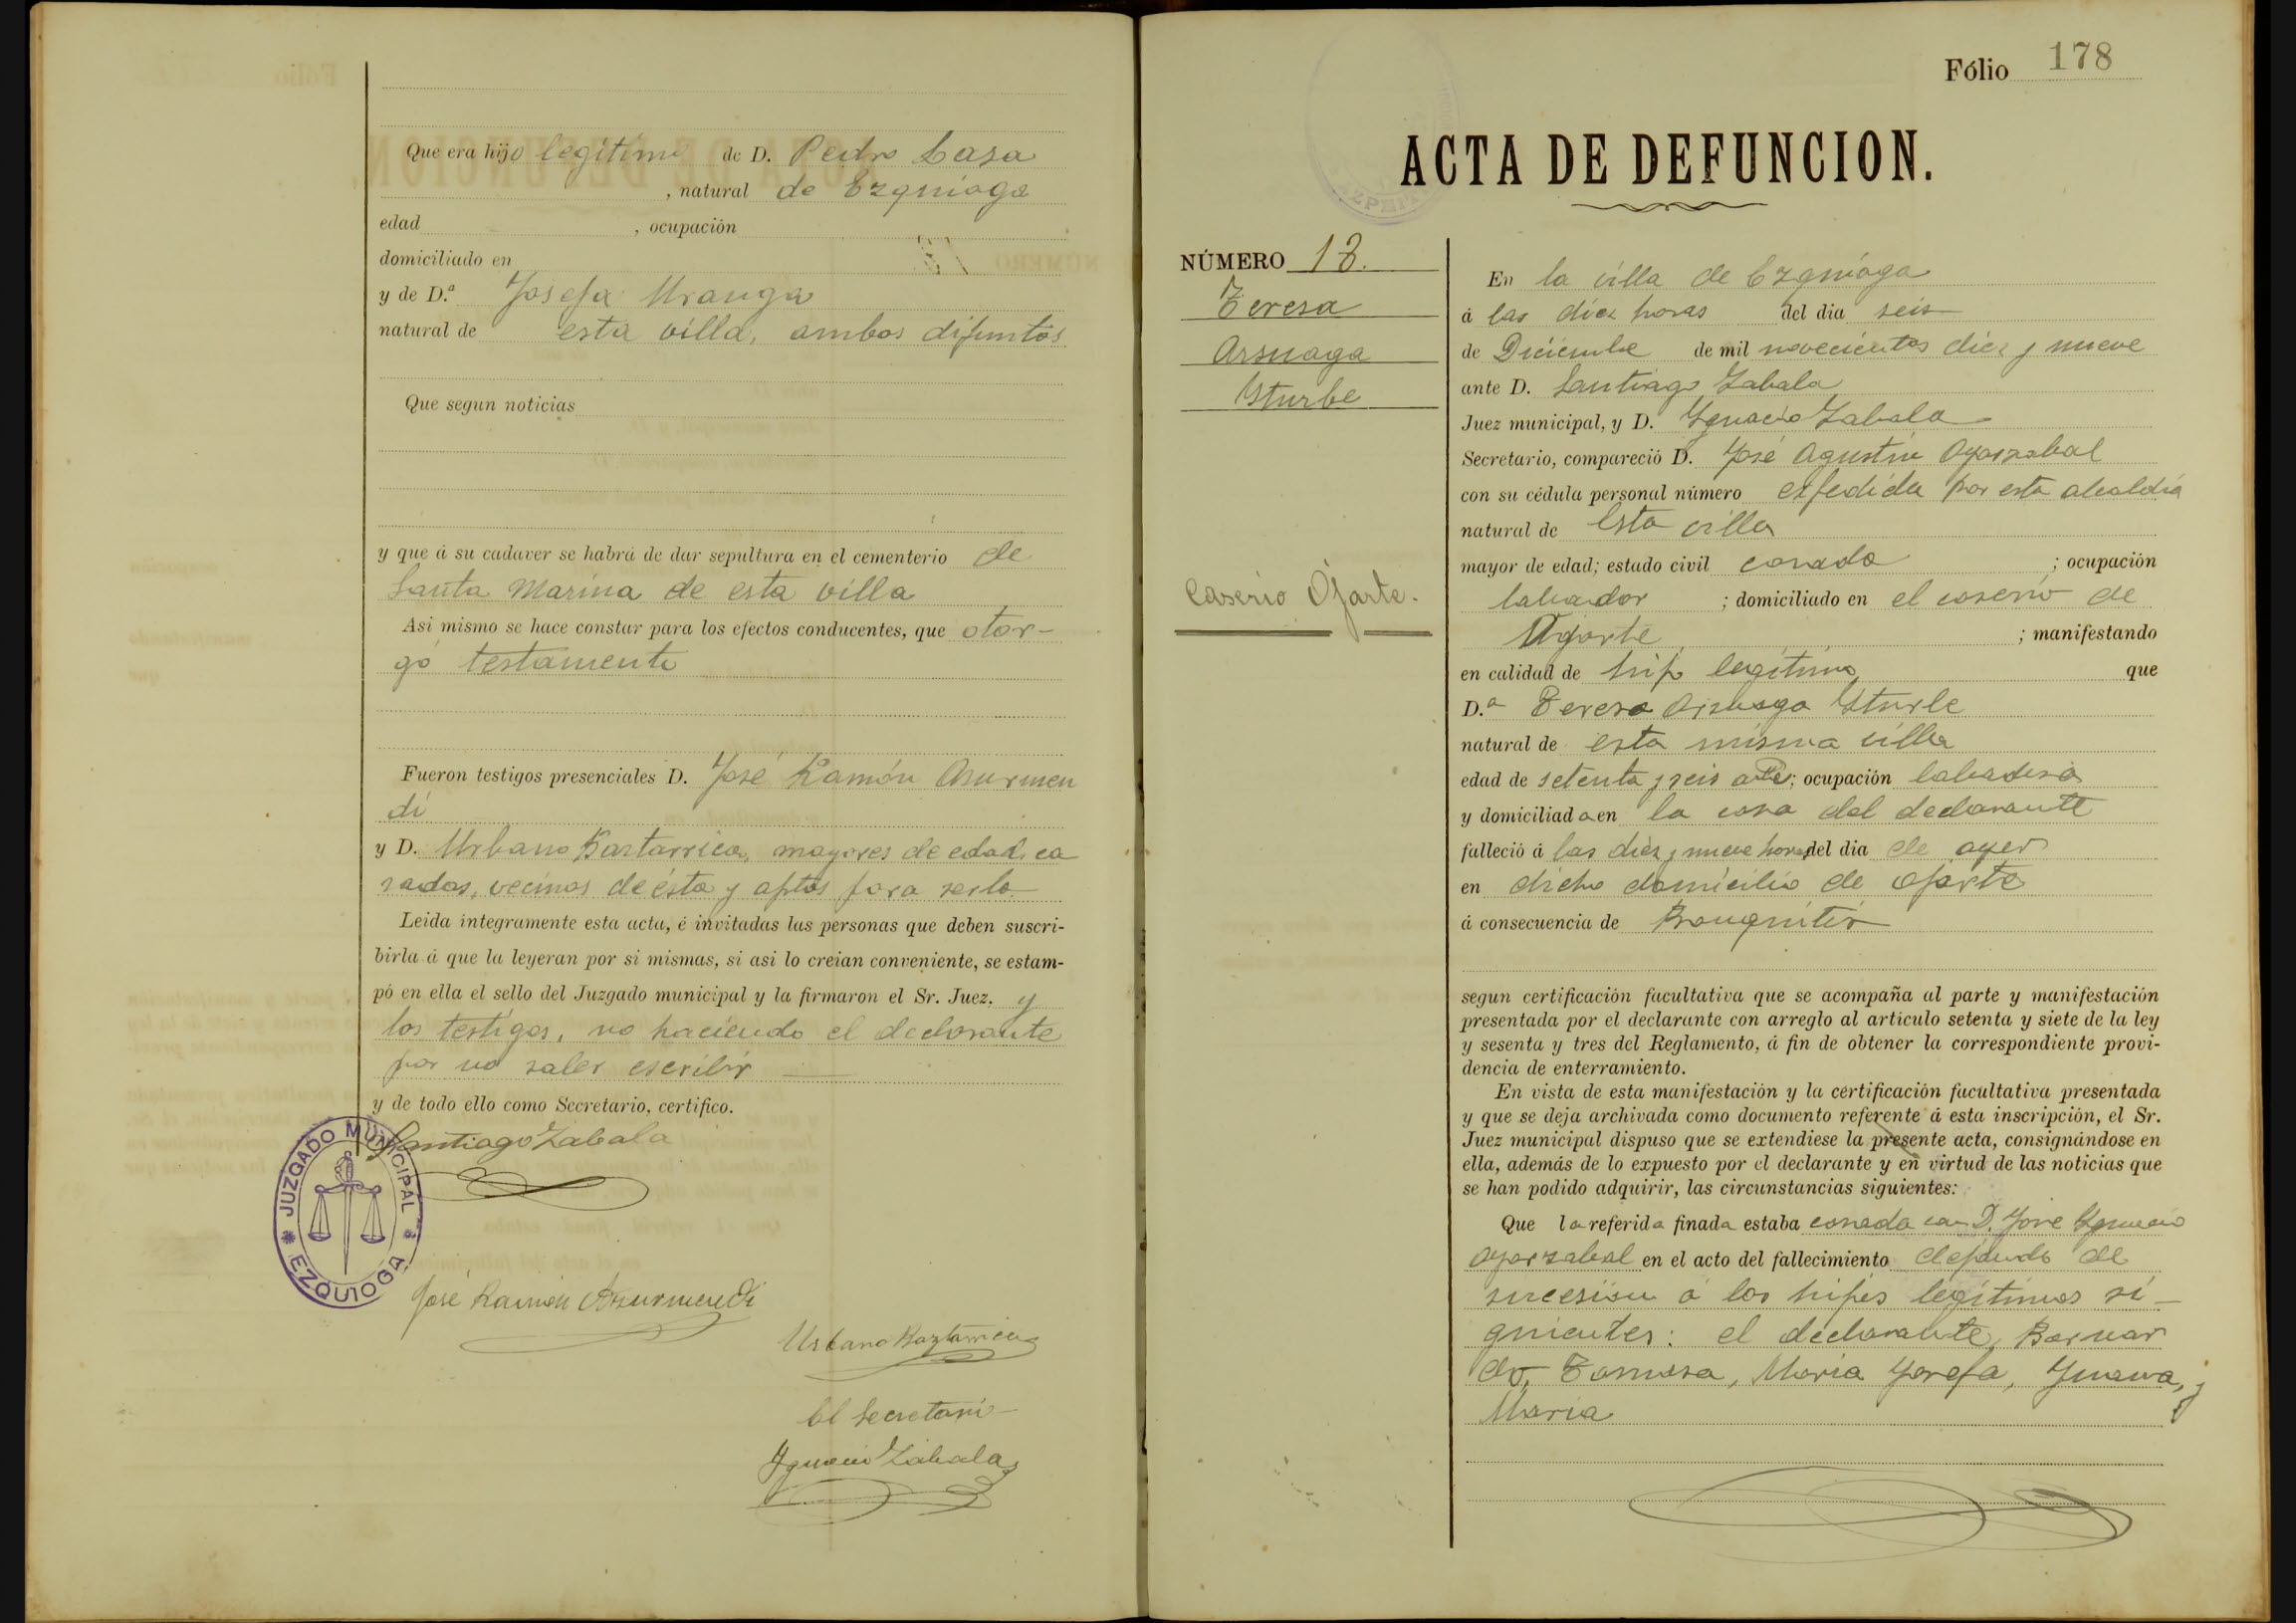 Que era hijo legítimo de D. Pedro Lasa
, natural de Ezquioga
edad , ocupación
domiciliado en
y de D.ª Josefa Uranga
natural de esta villa, ambos difuntos
Que segun noticias
y que á su cadaver se habrá de dar sepultura en el cementerio de
Santa Marina de esta villa
Asi mismo se hace constar para los efectos conducentes, que otor-
gó testamento
Fueron testigos presenciales D. José Ramón Asurmen
di
y D. Urbano Bastarrica, mayores de edad, ca
sados, vecinos de ésta y aptos para serlo
Leida integramente esta acta, é invitadas las personas que deben suscri-
birla á que la leyeran por si mismas, si asi lo creian conveniente, se estam-
pó en ella el sello del Juzgado municipal y la firmaron el Sr. Juez. y
los testigos, no haciendo el declarante
por no saber escribir
y de todo ello como Secretario, certifico.
Santiago Zabala
JUZGADO MUNICIPAL
EZQUIOGA
José Ramón Asurmendi
Urbano Baztarrica
El Secretario
Ignacio Zabala
Fólio 178
ACTA DE DEFUNCION.
NÚMERO 18.
Teresa
Arsuaga
Yturbe
Caserio Ojarte.
En la villa de Ezquioga
á las diez horas del dia seis
de Diciembre de mil novecientos diez y nueve
ante D. Santiago Zabala
Juez municipal, y D. Ygnacio Zabala
Secretario, compareció D. José Agustin Oyarzabal
con su cédula personal número expedida por esta alcaldia
natural de Esta villa
mayor de edad; estado civil casado ; ocupación
labrador ; domiciliado en el caserio de
; manifestando
en calidad de hijo legítimo que
D.ª Teresa Arsuaga Yturbe
natural de esta misma villa
edad de setenta y seis ; ocupación labradora
y domiciliada en la casa del declarante
falleció á las diez y nueve horas del dia de ayer
en dicho domicilio de Ojarte
á consecuencia de Bronquitis
segun certificación facultativa que se acompaña al parte y manifestación
presentada por el declarante con arreglo al articulo setenta y siete de la ley
y sesenta y tres del Reglamento, á fin de obtener la correspondiente provi-
dencia de enterramiento.
En vista de esta manifestación y la certificación facultativa presentada
y que se deja archivada como documento referente á esta inscripción, el Sr.
Juez municipal dispuso que se extendiese la presente acta, consignándose en
ella, además de lo expuesto por el declarante y en virtud de las noticias que
se han podido adquirir, las circunstancias siguientes:
Que la referida finada estaba casada con D. José Ygnacio
Oyarzabal en el acto del fallecimiento dejando de
sucesión á los hijos legítimos si-
guientes: el declarante, Bernar
do, Tomasa, Maria Josefa, Juana, y
Maria